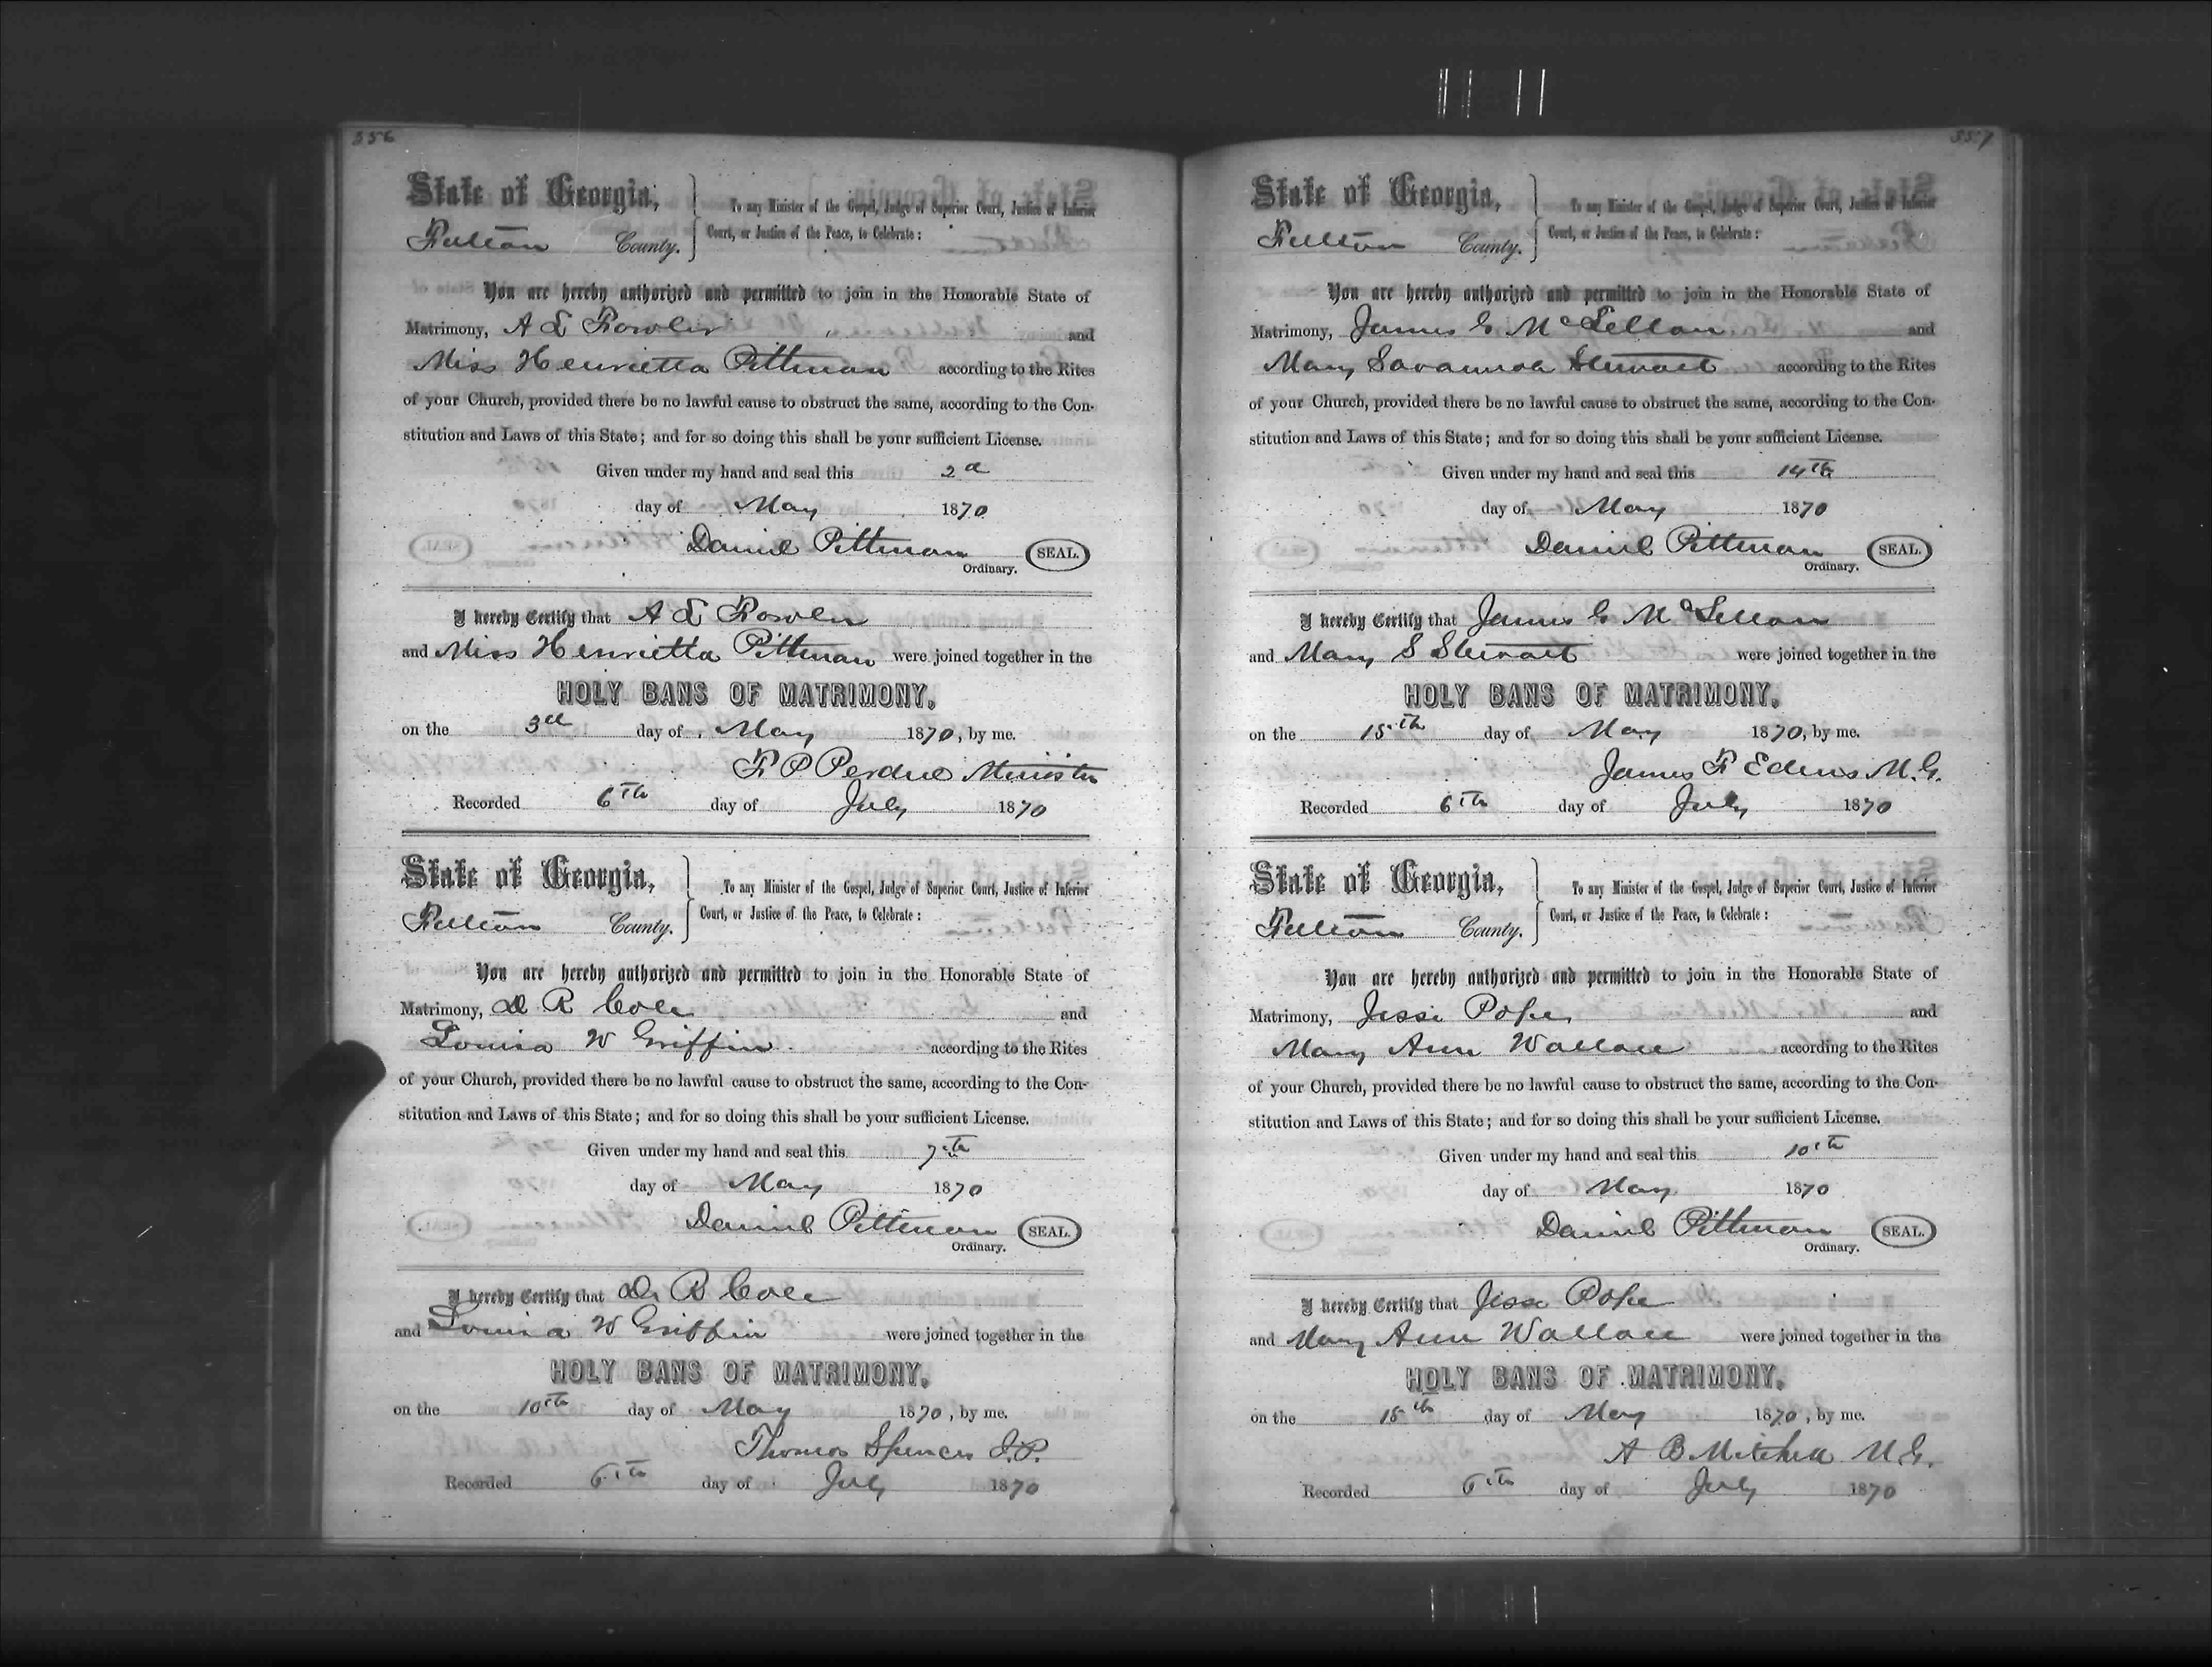 356
State of Georgia,
Fulton County.
To any Minister of the Gospel, Judge of Superior Court, Justice of Inferior
Court, or Justice of the Peace, to Celebrate:
You are hereby authorized and permitted to join in the Honorable State of
Matrimony, A E Fowler and
Miss Henrietta Pittman according to the Rites
of your Church, provided there be no lawful cause to obstruct the same, according to the Con-
stitution and Laws of this State; and for so doing this shall be your sufficient License.
Given under my hand and seal this 2d
day of May 1870
Daniel Pittman SEAL.
Ordinary.
I hereby Certify that A E Fowler
and Miss Henrietta Pittman were joined together in the
HOLY BANS OF MATRIMONY,
on the 3d day of May 1870, by me.
F P Perdue Minister
Recorded 6th day of July 1870
State of Georgia,
Fulton County.
To any Minister of the Gospel, Judge of Superior Court, Justice of Inferior
Court, or Justice of the Peace, to Celebrate:
You are hereby authorized and permitted to join in the Honorable State of
Matrimony, D R Cole and
Louisa W Griffin according to the Rites
of your Church, provided there be no lawful cause to obstruct the same, according to the Con-
stitution and Laws of this State; and for so doing this shall be your sufficient License.
Given under my hand and seal this 7th
day of May 1870
Daniel Pittman SEAL.
Ordinary.
I hereby Certify that R Cole
and Louisa W Griffin were joined together in the
HOLY BANS OF MATRIMONY,
on the 10th day of May 1870, by me.
Thomas Spencer J.P.
Recorded 6th day of July 1870
357
State of Georgia,
Fulton County.
To any Minister of the Gospel, Judge of Superior Court, Justice of Inferior
Court, or Justice of the Peace, to Celebrate:
You are hereby authorized and permitted to join in the Honorable State of
Matrimony, James G McLellan and
Mary Savannah Stewart according to the Rites
of your Church, provided there be no lawful cause to obstruct the same, according to the Con-
stitution and Laws of this State; and for so doing this shall be your sufficient License.
Given under my hand and seal this 14th
day of May 1870
Daniel Pittman SEAL.
Ordinary.
I hereby Certify that James G McLellan
and Mary S Stewart were joined together in the
HOLY BANS OF MATRIMONY,
on the 15th day of May 1870, by me.
James F Edens M.G.
Recorded 6th day of July 1870
State of Georgia,
Fulton County.
To any Minister of the Gospel, Judge of Superior Court, Justice of Inferior
Court, or Justice of the Peace, to Celebrate:
You are hereby authorized and permitted to join in the Honorable State of
Matrimony, Jesse Pope and
Mary Ann Wallace according to the Rites
of your Church, provided there be no lawful cause to obstruct the same, according to the Con-
stitution and Laws of this State; and for so doing this shall be your sufficient License.
Given under my hand and seal this 10th
day of May 1870
Daniel Pittman SEAL.
Ordinary.
I hereby Certify that Jesse Pope
and Mary Ann Wallace were joined together in the
HOLY BANS OF MATRIMONY,
on the day of May 1870, by me.
A B Mitchell M.G.
Recorded 6th day of July 1870